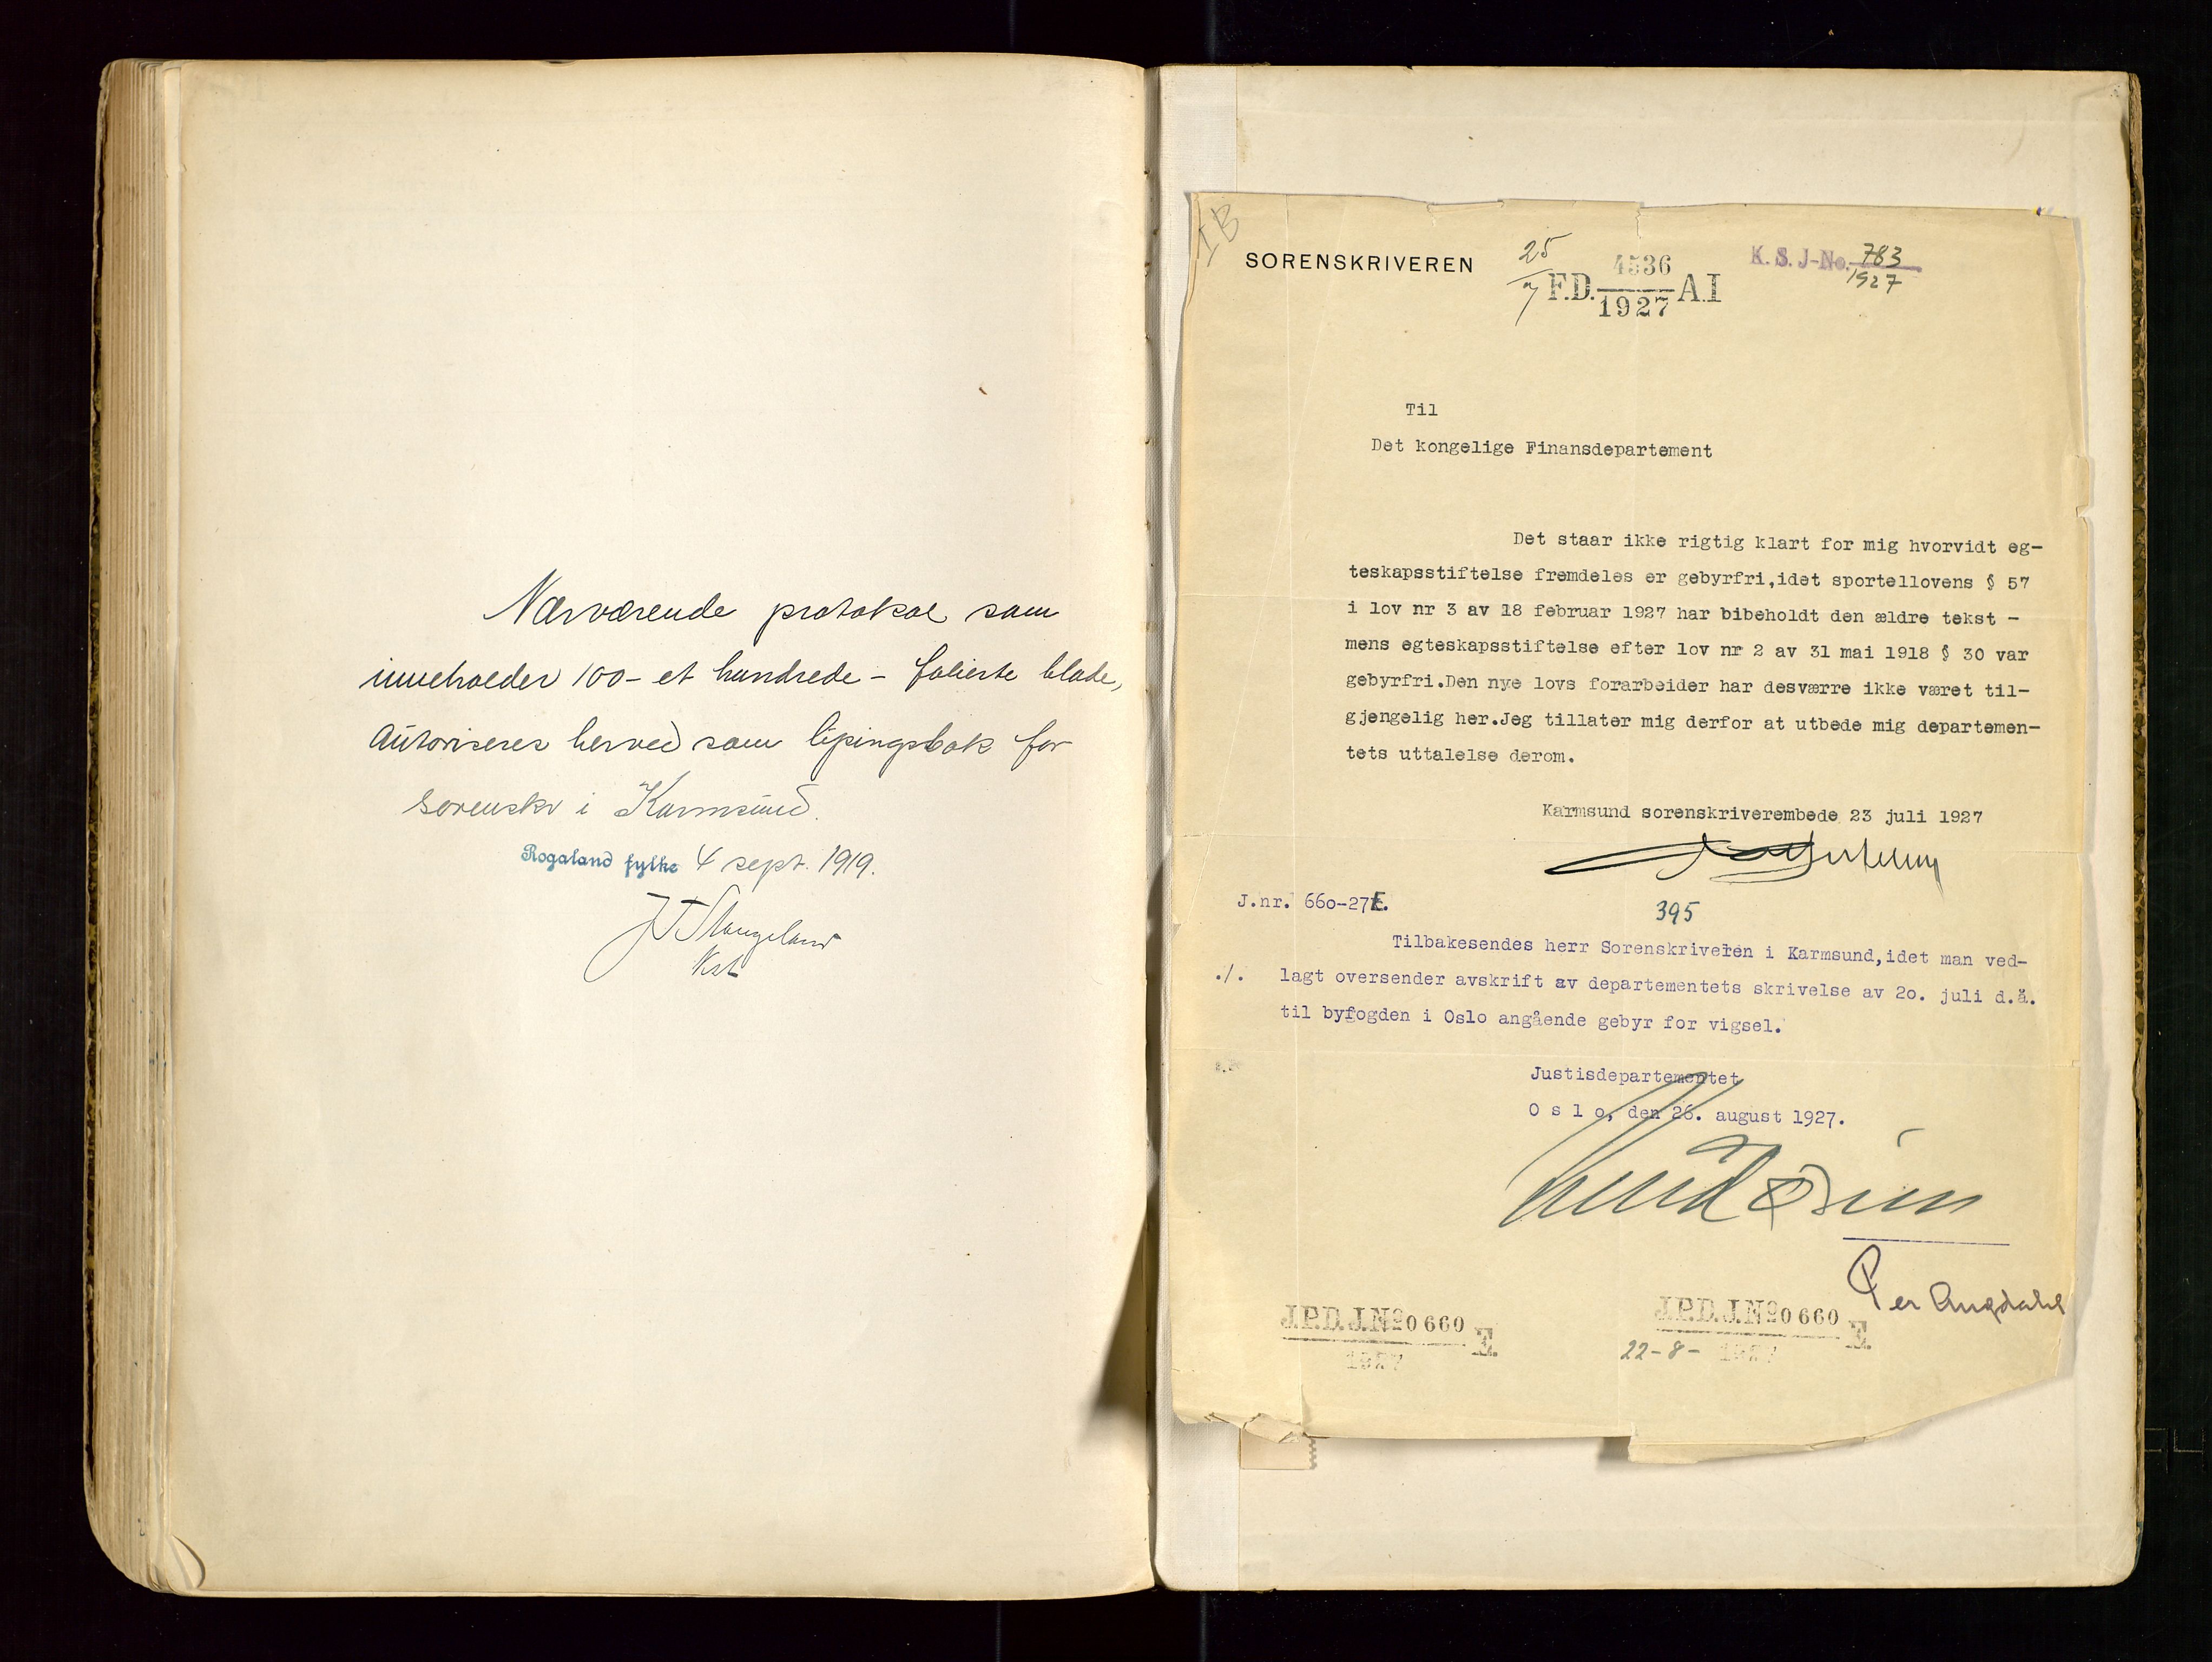 Nærværende protokol som
inneholder 100 - et hundrede - folierte blade,
autoriseres herved som vigselsbok for
sorenskr i Karmsund.
Rogaland fylke 4 sept. 1919.
I B
SORENSKRIVEREN
25/7 F.D. 4536 A.I
1927
K. S. J-No. 783
1927
Til
Det kongelige Finansdepartement
Det staar ikke rigtig klart for mig hvorvidt eg-
teskapsstiftelse fremdeles er gebyrfri,idet sportellovens § 57
i lov nr 3 av 18 februar 1927 har bibeholdt den ældre tekst -
mens egteskapsstiftelse efter lov nr 2 av 31 mai 1918 § 30 var
gebyrfri.Den nye lovs forarbeider har desværre ikke været til-
gjengelig her.Jeg tillater mig derfor at utbede mig departemen-
tets uttalelse derom.
Karmsund sorenskriverembede 23 juli 1927
J.nr. 660-27E.
395
Tilbakesendes herr Sorenskriveren i Karmsund,idet man ved-
./. lagt oversender avskrift av departementets skrivelse av 20. juli d.å.
til byfogden i Oslo angående gebyr for vigsel.
Justisdepartementet
O s l o, den 26. august 1927.
Knud Øien
Per Augdahl
J.P.D. J.No 0660 E.
1927
J.P.D. J.No 0660 E.
22-8- 1927